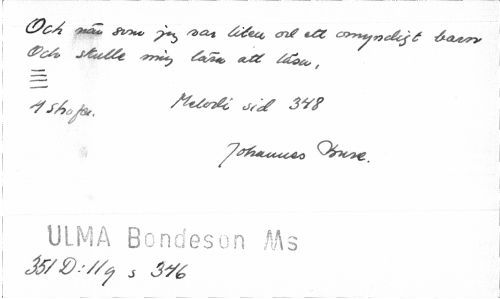 Och när som jag var liten och ett omyndigt barn
Och skulle mig lära att läsa,
4 strofer. Melodi sid 348
Johannes
ULMA Bondeson Ms
351 D:11q s 346